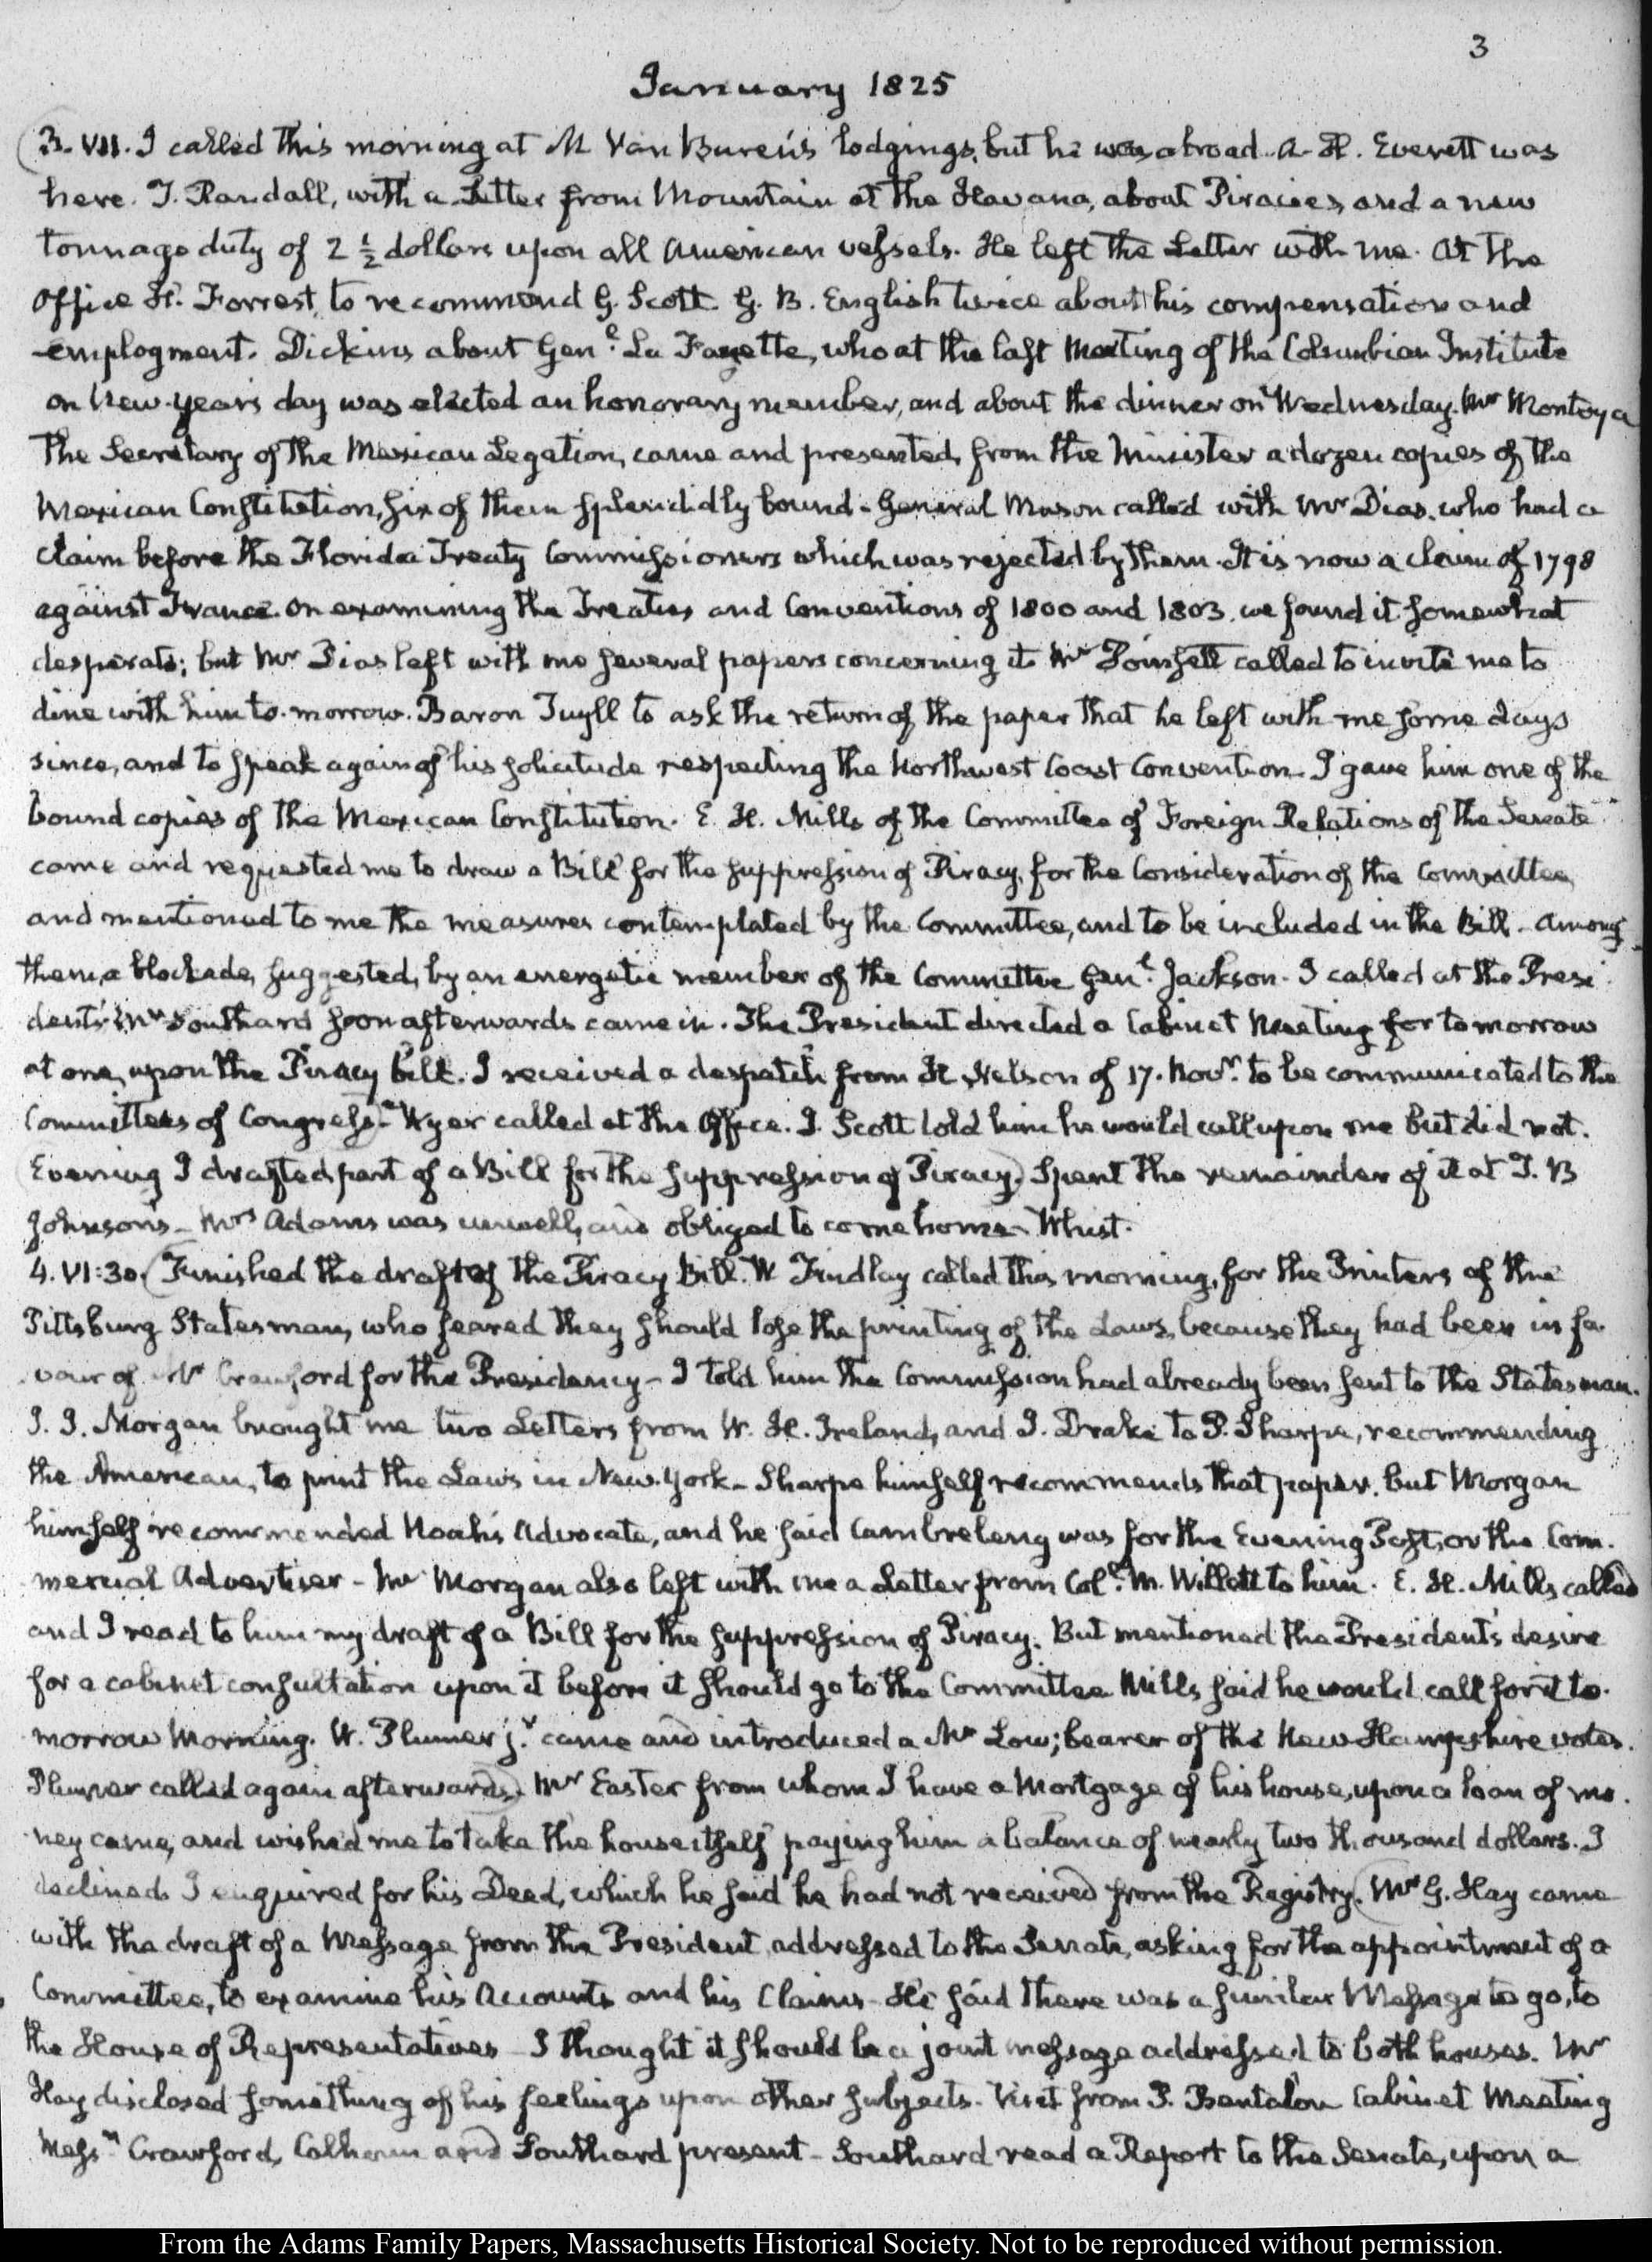 3
January 1825
3. VII. I called this morning at M Van Buren's lodgings, but he was abroad. A. H. Everett was
here. T. Randall, with a Letter from Mountain at the Havana, about Piracies, and a new
tonnage duty of 2 1/2 dollars upon all American vessels. He left the Letter with me. At the
Office H. Forrest, to recommend G. Scott. G. B. English twice about his compensation and
employment. Dickins about Genl. La Fayette, who at the last Meeting of the Columbian Institute
on New-year's day was elected an honorary member, and about the dinner on Wednesday. Mr Montoya
the Secretary of the Mexican Legation, came and presented, from the Minister a dozen copies of the
Mexican Constitution, six of them splendidly bound. General Mason called with Mr Dias, who had a
claim before the Florida Treaty Commissioners which was rejected by them. It is now a claim of 1798
against France. On examining the Treaties and Conventions of 1800 and 1803. we found it somewhat
desperate; but Mr Dias left with me several papers concerning it. Mr Poinsett called to invite me to
dine with him to-morrow. Baron Tuyll to ask the return of the paper that he left with me some days
since, and to speak again of his solicitude respecting the Northwest Coast Convention. I gave him one of the
bound copies of the Mexican Constitution. E. H. Mills of the Committee of Foreign Relations of the Senate
came and requested me to draw a Bill for the suppression of Piracy, for the Consideration of the Committee,
and mentioned to me the measures contemplated by the Committee, and to be included in the Bill - Among
them, a blockade, suggested, by an energetic member of the Committee Genl. Jackson. I called at the Presi
dent's. Mr Southard soon afterwards came in. The President directed a Cabinet Meeting for tomorrow
at one, upon the Piracy bill. I received a despatch from H Nelson of 17. Novr. to be communicated to the
Committees of Congress. Wyer called at the Office. J. Scott told him he would call upon me but did not.
Evening I drafted part of a Bill for the suppression of Piracy. Spent the remainder of it at T. B
Johnson's - Mrs Adams was unwell, and obliged to come home - Whist.
4. VI:30. Finished the draft of the Piracy Bill. W Findlay called this morning, for the Printers of the
Pittsburg Statesman, who feared they should lose the printing of the Laws, because they had been in fa
vour of Mr Crawford for the Presidency - I told him the Commission had already been sent to the Statesman.
J. J. Morgan brought me two Letters from W. H. Ireland, and J. Drake to P. Sharpe, recommending
the American, to print the Laws in New-York - Sharpe himself recommends that paper, but Morgan
himself recommended Noah's Advocate, and he said Cambreleng was for the Evening Post, or the Com-
mercial Advertiser - Mr Morgan also left with me a Letter from Coll. M. Willett to him. E. H. Mills called
and I read to him my draft of a Bill for the suppression of Piracy. But mentioned the President's desire
for a cabinet consultation upon it before it should go to the Committee. Mills said he would call for it to-
morrow Morning. W. Plumer jr. came and introduced a Mr Low; bearer of the New Hampshire votes.
Plumer called again afterwards. Mr Easter from whom I have a Mortgage of his house, upon a loan of mo-
ney came, and wished me to take the house itself paying him a balance of nearly two thousand dollars. I
declined. I enquired for his Deed, which he said he had not received from the Registry. Mr G. Hay came
with the draft of a Message from the President addressed to the Senate, asking for the appointment of a
Committee, to examine his Accounts and his Claims - He said there was a similar Message to go, to
the House of Representatives - I thought it should be a joint message addressed to both houses. Mr
Hay disclosed something of his feelings upon other subjects. Visit from P. Bentalou Cabinet Meeting
Messrs Crawford, Calhoun and Southard present - Southard read a Report to the Senate, upon a
From the Adams Family Papers, Massachusetts Historical Society. Not to be reproduced without permission.